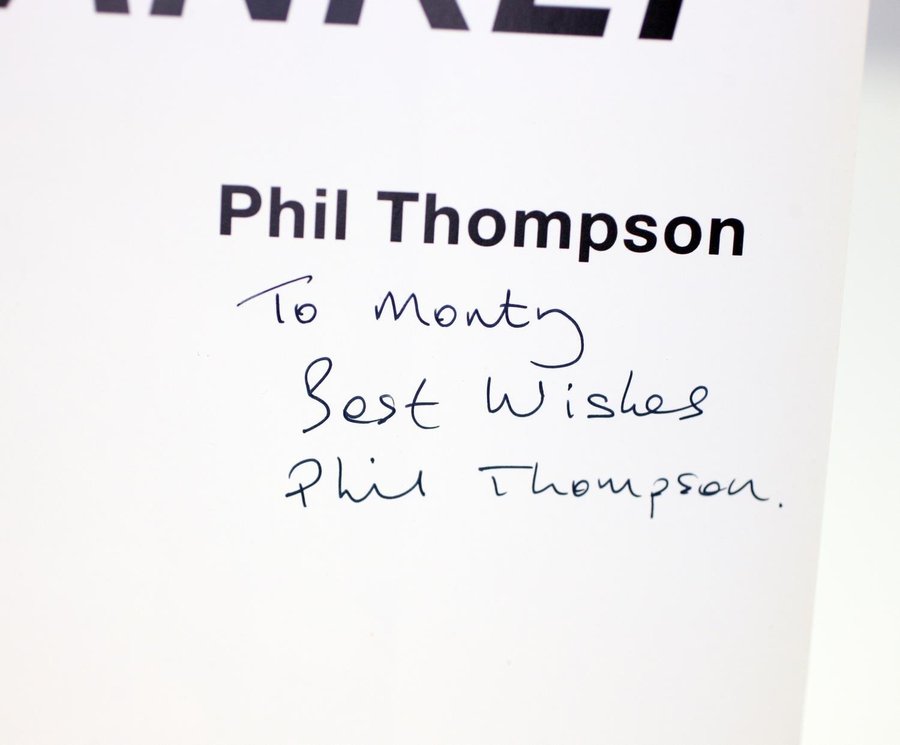 Phil Thompson
To Monty
Best Wishes
Phil Thompson.